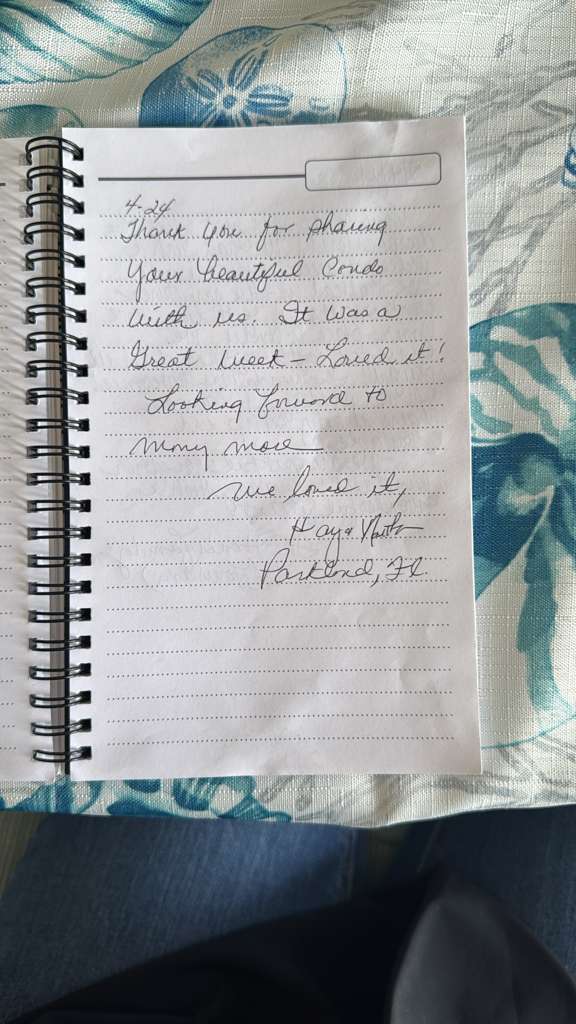 4-24
Thank you for sharing
your beautiful Condo
with us. It was a
Great week - Loved it!
Looking forward to
many more
we loved it,
Parkland, Fl